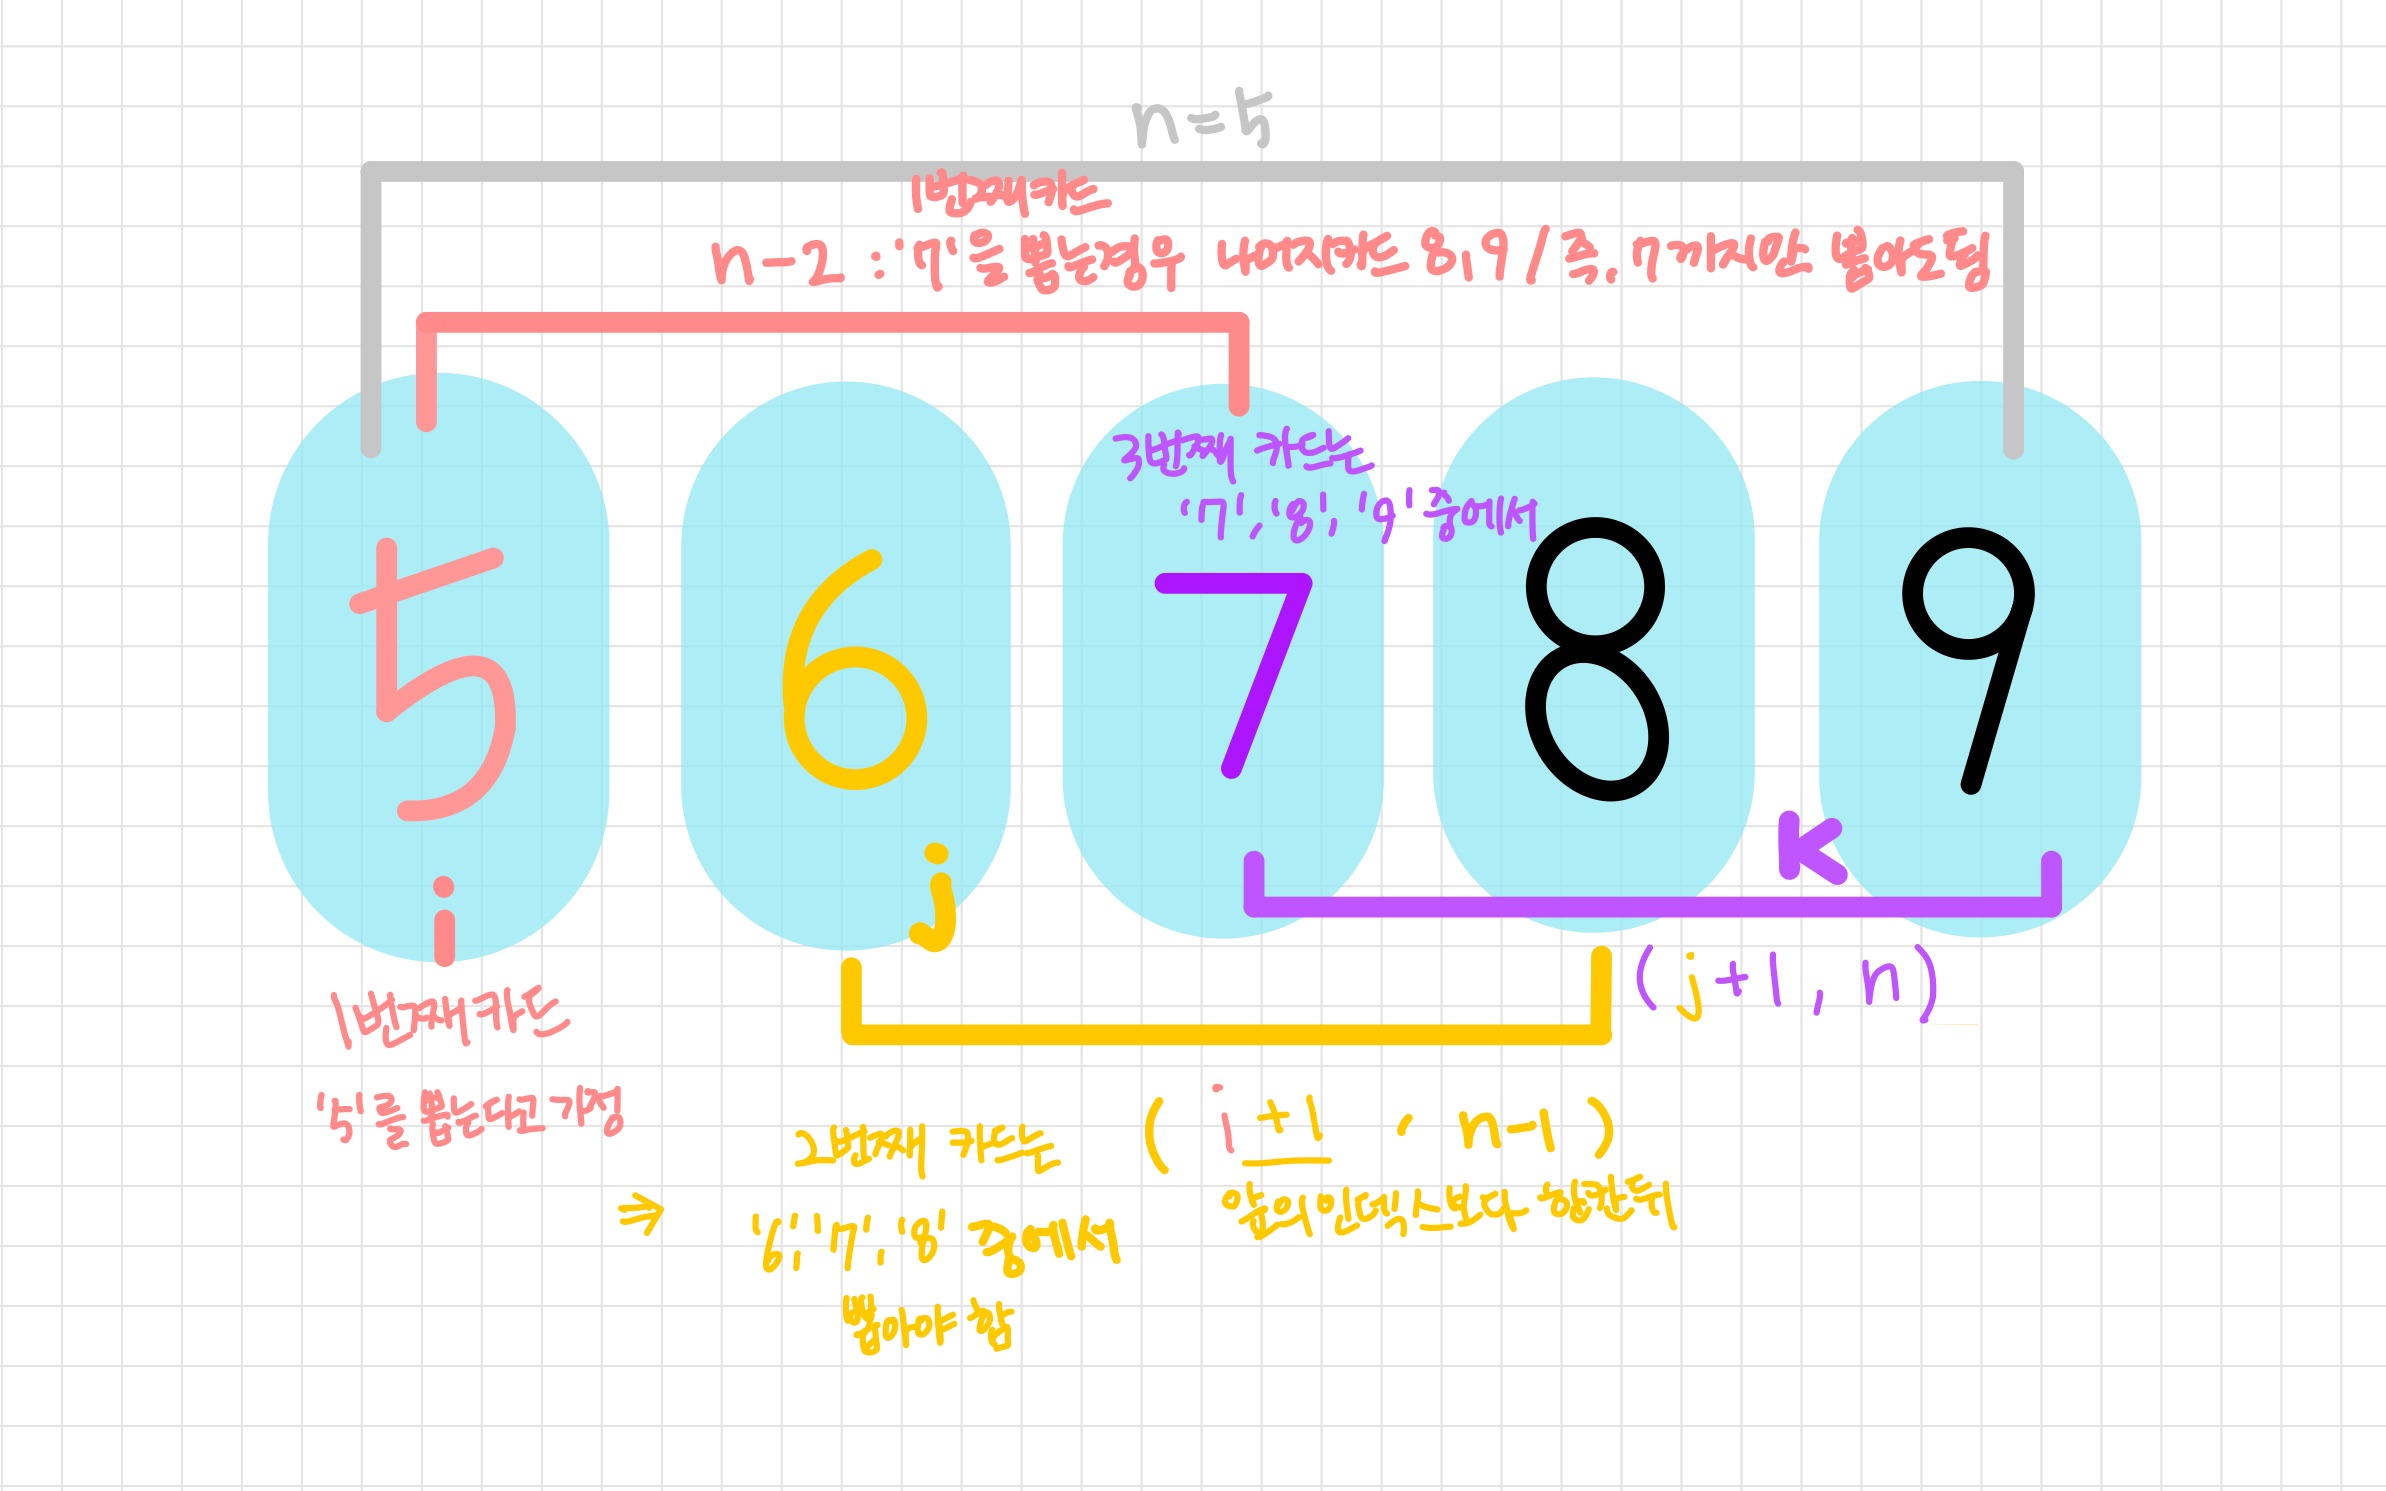 n=5
1번째 카드
n-2 : '7'을 뽑는경우 나머지 카드는 8, 9 / 즉, 7까지만 뽑아도 됨
3번째 카드는
'7', '8', '9' 중에서
5 6 7 8 9
i
j
K
(j+1, n)
1번째 카드
'5'를 뽑는다고 가정
2번째 카드는
(i+1 , n-1)
⇒ '6', '7', '8' 중에서
뽑아야 함